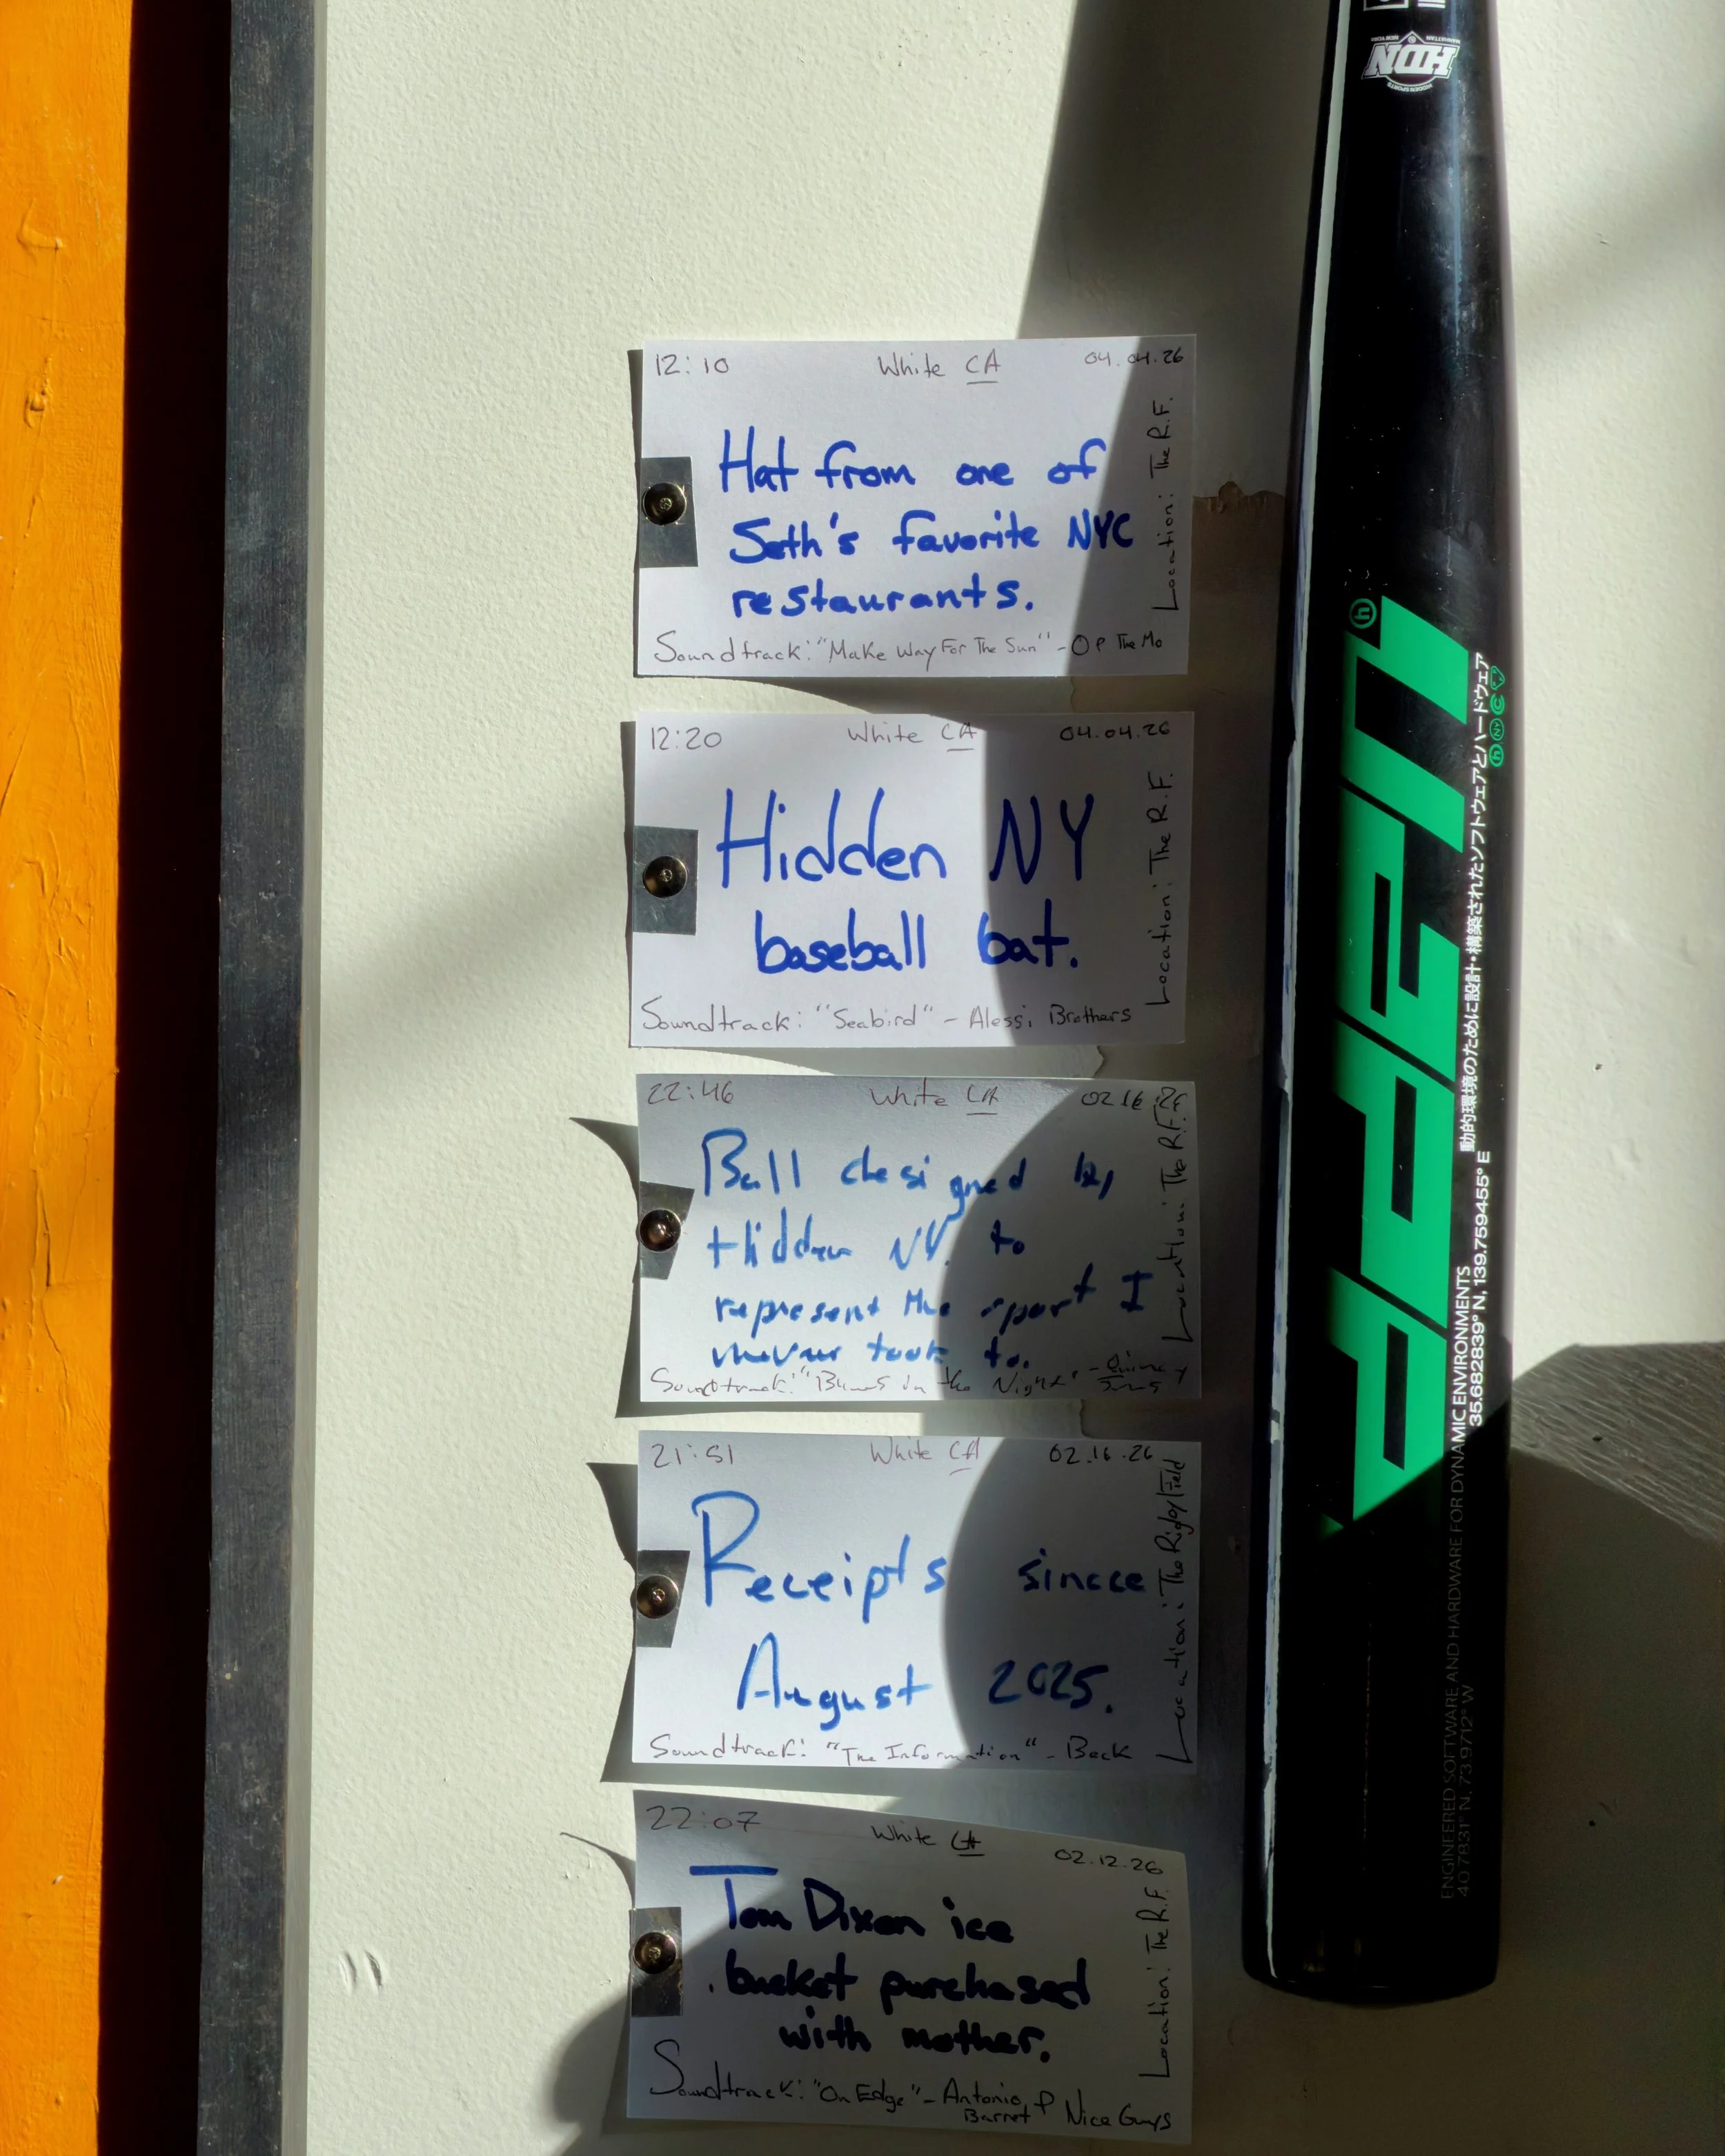 12:10 White CA 04.04.26
Hat from one of
Seth's favorite NYC
restaurants.
Soundtrack: "Make Way For The Sun" - Op The Mo
Location: The R.F.
12:20 White CA 04.04.26
Hidden NY
baseball bat.
Soundtrack: "Seabird" - Alessi Brothers
Location: The R.F.
22:46 White CA 02.16.26
Ball designed by
Hidden NY to
represent the sport I
never took to.
Soundtrack: in the Night" -
Location: The R.F.
21:51 White CA 02.16.26
Receipts since
August 2025.
Soundtrack: "The Information" - Beck
Location: The Rigby Field
22:07 White CA 02.12.26
Tom Dixon ice
bucket purchased
with mother.
Soundtrack: "On Edge" - Antonio Barret & Nice Guys
Location: The R.F.
MANHATTAN NEW YORK
HDN
HIDDEN SPORTS
動的環境のために設計・構築されたソフトウェアとハードウェア
35.682839° N, 139.759455° E
ENGINEERED SOFTWARE AND HARDWARE FOR DYNAMIC ENVIRONMENTS
40.7831° N, 73.9712° W